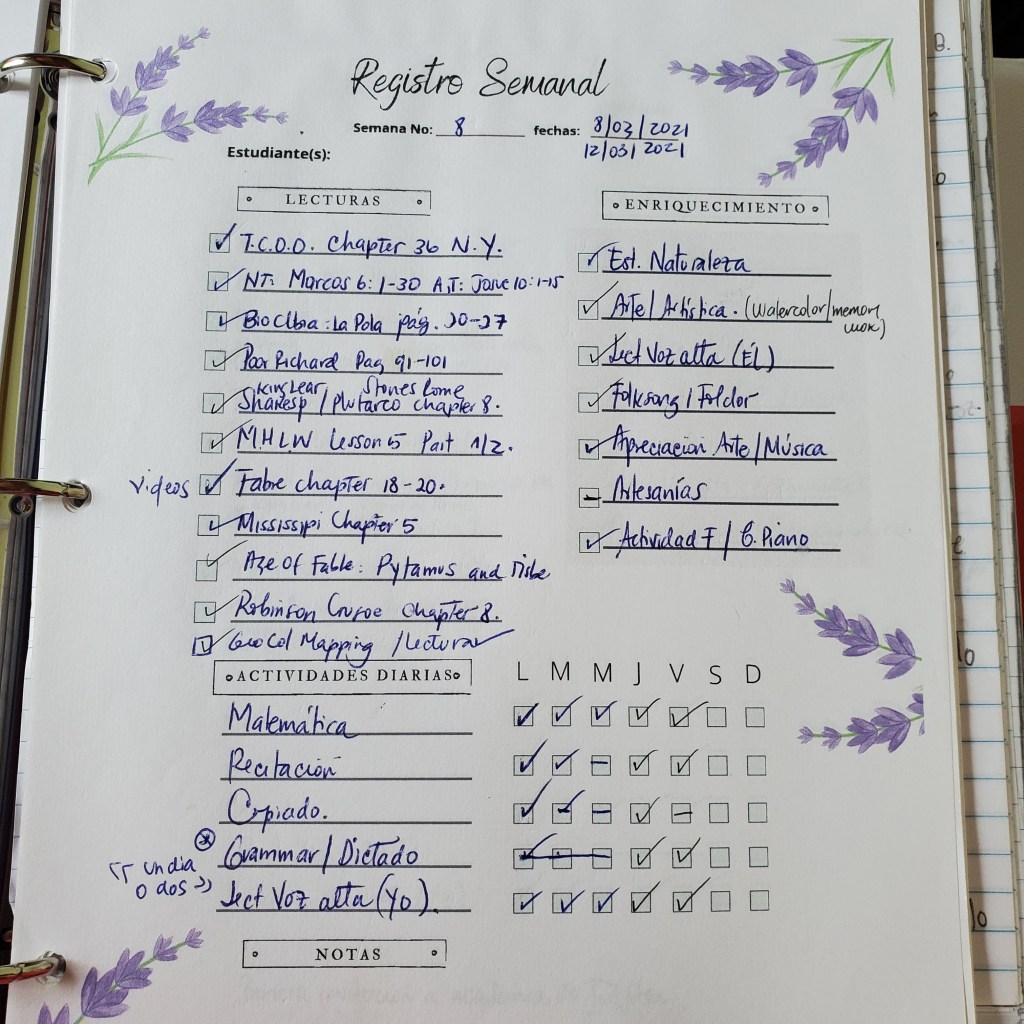 Registro Semanal
Semana No: 8 fechas: 8/03/2021
12/03/2021
Estudiante(s):
LECTURAS
T.C.O.O. Chapter 36 N.Y.
NT: Marcos 6:1-30 A.T: Josue 10:1-15
La Pola pág. 20-27
Poor Richard Pag 91-101
King Lear Stones Come
Shakesp / Plutarco chapter 8.
M.H.L.W Lesson 5 Part 1/2.
videos Fabre chapter 18-20.
Mississipi Chapter 5
Age of Fable: Pytamus and Tisbe
Robinson Crusoe chapter 8.
Geo Col Mapping / Lectura
ENRIQUECIMIENTO
Est. Naturaleza
Arte / Artística. (Watercolor/memory
work)
Lect Voz alta (ÉL)
Folksong / Folclor
Apreciación Arte / Música
Artesanías
Actividad F / C. Piano
ACTIVIDADES DIARIAS L M M J V S D
Matemática
Recitación
Copiado.
Grammar / Dictado
un dia
o dos
Lect Voz alta (Yo).
NOTAS